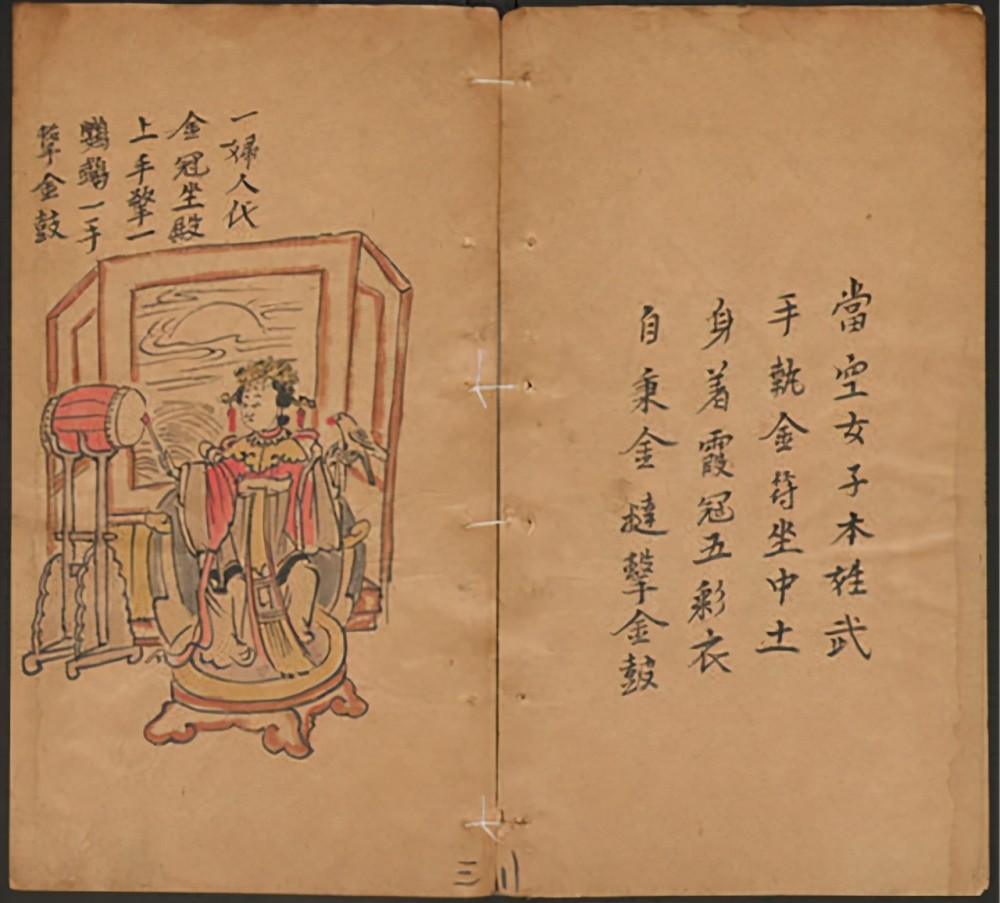 當空女子本姓武
手執金符坐中土
身着霞冠五彩衣
自秉金撻擊金鼓
一婦人代
金冠坐殿
上手擎一
鸚鵡一手
擊金鼓
三